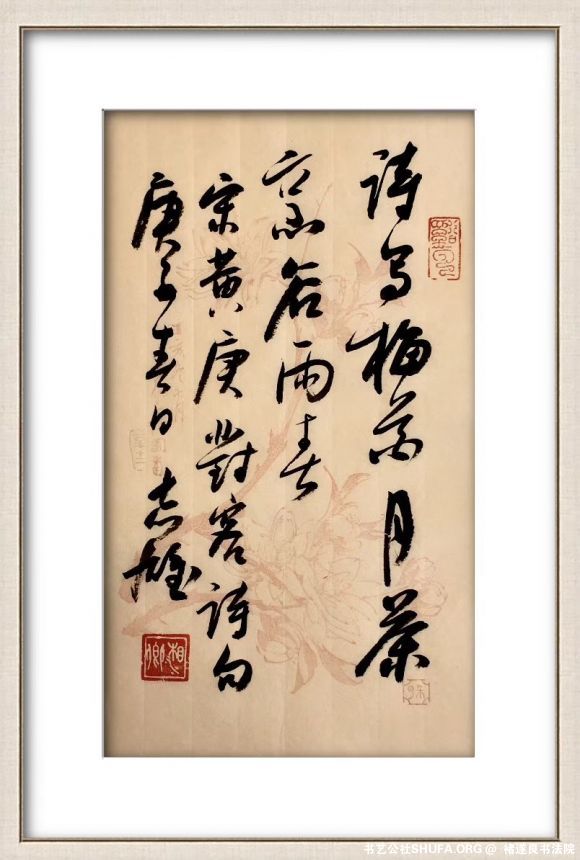 詩寫梅花月茶
烹谷雨春
宋黄庚對客詩句
庚子春日 志雄
书艺公社SHUFA.ORG @ 褚遂良书法院